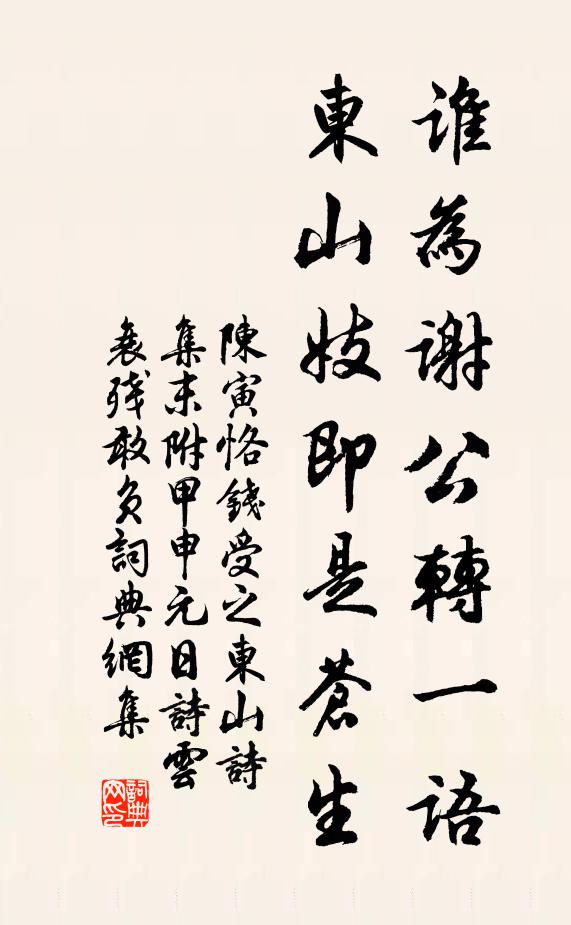 誰為謝公轉一語
東山妓即是蒼生
陳寅恪錢受之東山詩
集末附甲申元日詩雲
衰殘敢負詞典網集
詞典
网印